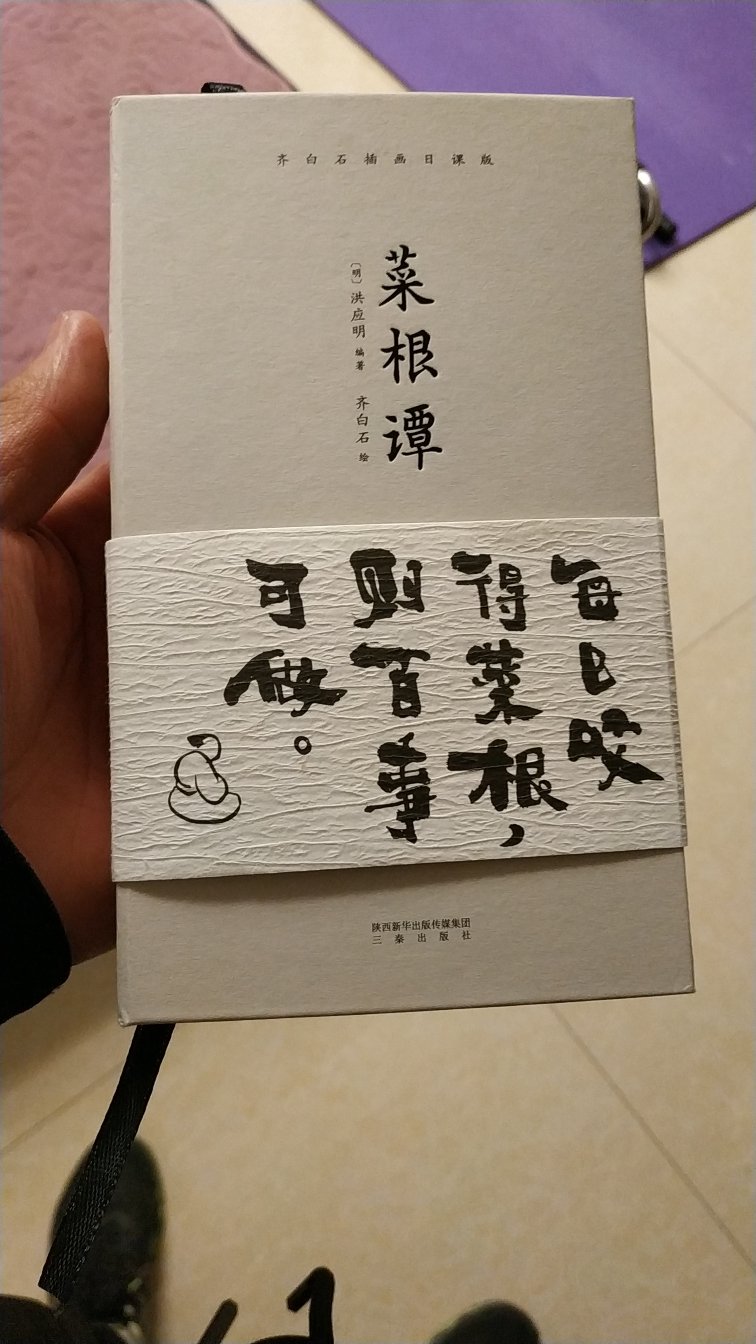 齐白石插画日课版
菜根谭
〔明〕洪应明 编著 齐白石 绘
每日咬
得菜根，
则百事
可做。
陕西新华出版传媒集团
三秦出版社